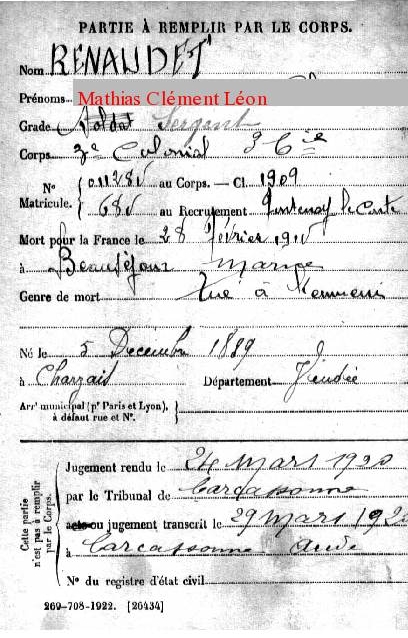 PARTIE À REMPLIR PAR LE CORPS.
Nom RENAUDET
Prénoms Mathias Clément Léon
Grade Soldat Sergent
Corps 3e Colonial 9 Cie
N° Matricule. { 011285 au Corps. — Cl. 1909
685 au Recrutement Fontenay le Comte
Mort pour la France le 28 Février 1915
à Beauséjour Marne
Genre de mort Tué à l'ennemi
Né le 5 Décembre 1889
à Charzais Département Vendée
Arrt municipal (pr Paris et Lyon),
à défaut rue et N°.
Cette partie n'est pas à remplir par le Corps.
Jugement rendu le 24 Mars 1920
par le Tribunal de Carcassonne
acte ou jugement transcrit le 29 Mars 1920
à Carcassonne Aude
N° du registre d'état civil
269-708-1922. [26434]